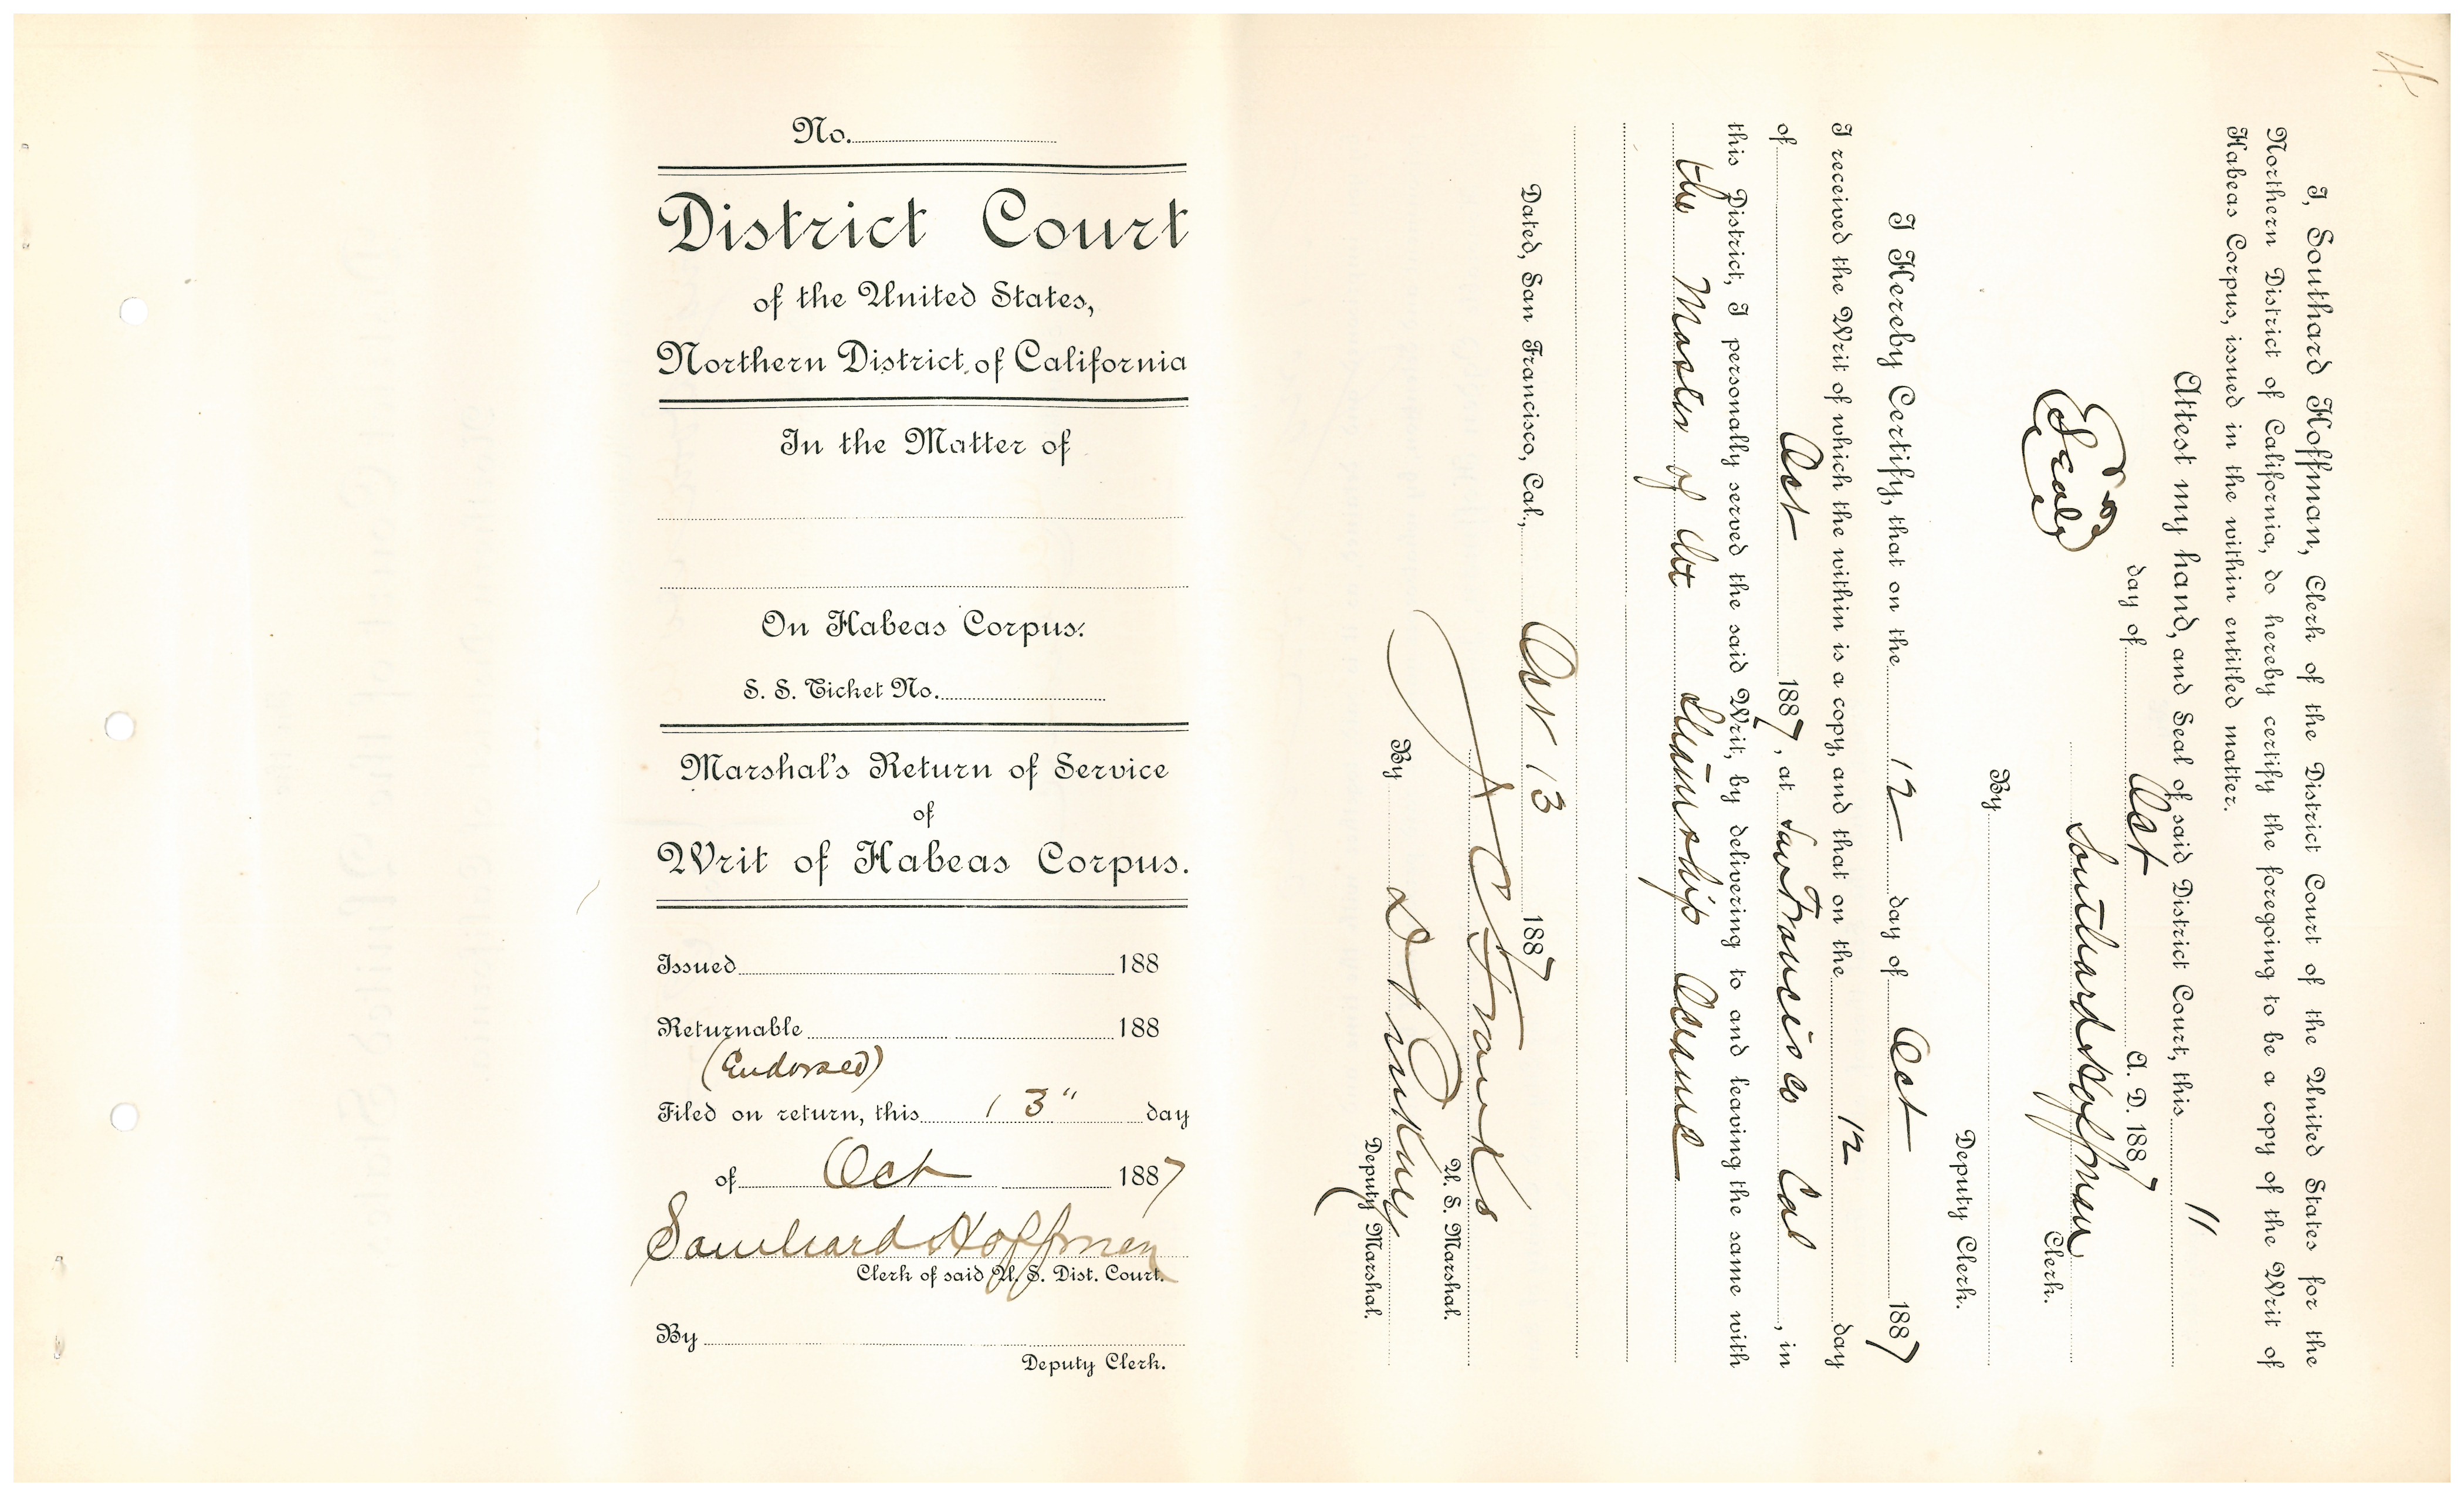 No.
District Court
of the United States,
Northern District of California
In the Matter of
On Habeas Corpus.
S. S. Ticket No.
Marshal's Return of Service
of
Writ of Habeas Corpus.
Issued 188
Returnable 188
(Endorsed)
Filed on return, this 13" day
of Oct 1887
Southard Hoffman
Clerk of said U. S. Dist. Court.
By
Deputy Clerk.
I, Southard Hoffman, Clerk of the District Court of the United States for the
Northern District of California, do hereby certify the foregoing to be a copy of the Writ of
Habeas Corpus, issued in the within entitled matter.
Attest my hand, and Seal of said District Court, this 11
day of Oct A. D. 1887
Seal
Southard Hoffman
Clerk.
By
Deputy Clerk.
I Hereby Certify, that on the 12 day of Oct 1887
I received the Writ of which the within is a copy, and that on the 12 day
of Oct 1887, at San Francisco Cal, in
this District, I personally served the said Writ, by delivering to and leaving the same with
the Master of the Steamship Oceanic
Dated, San Francisco, Cal., Oct 13 1887
J C Franks
U. S. Marshal.
By
Deputy Marshal.